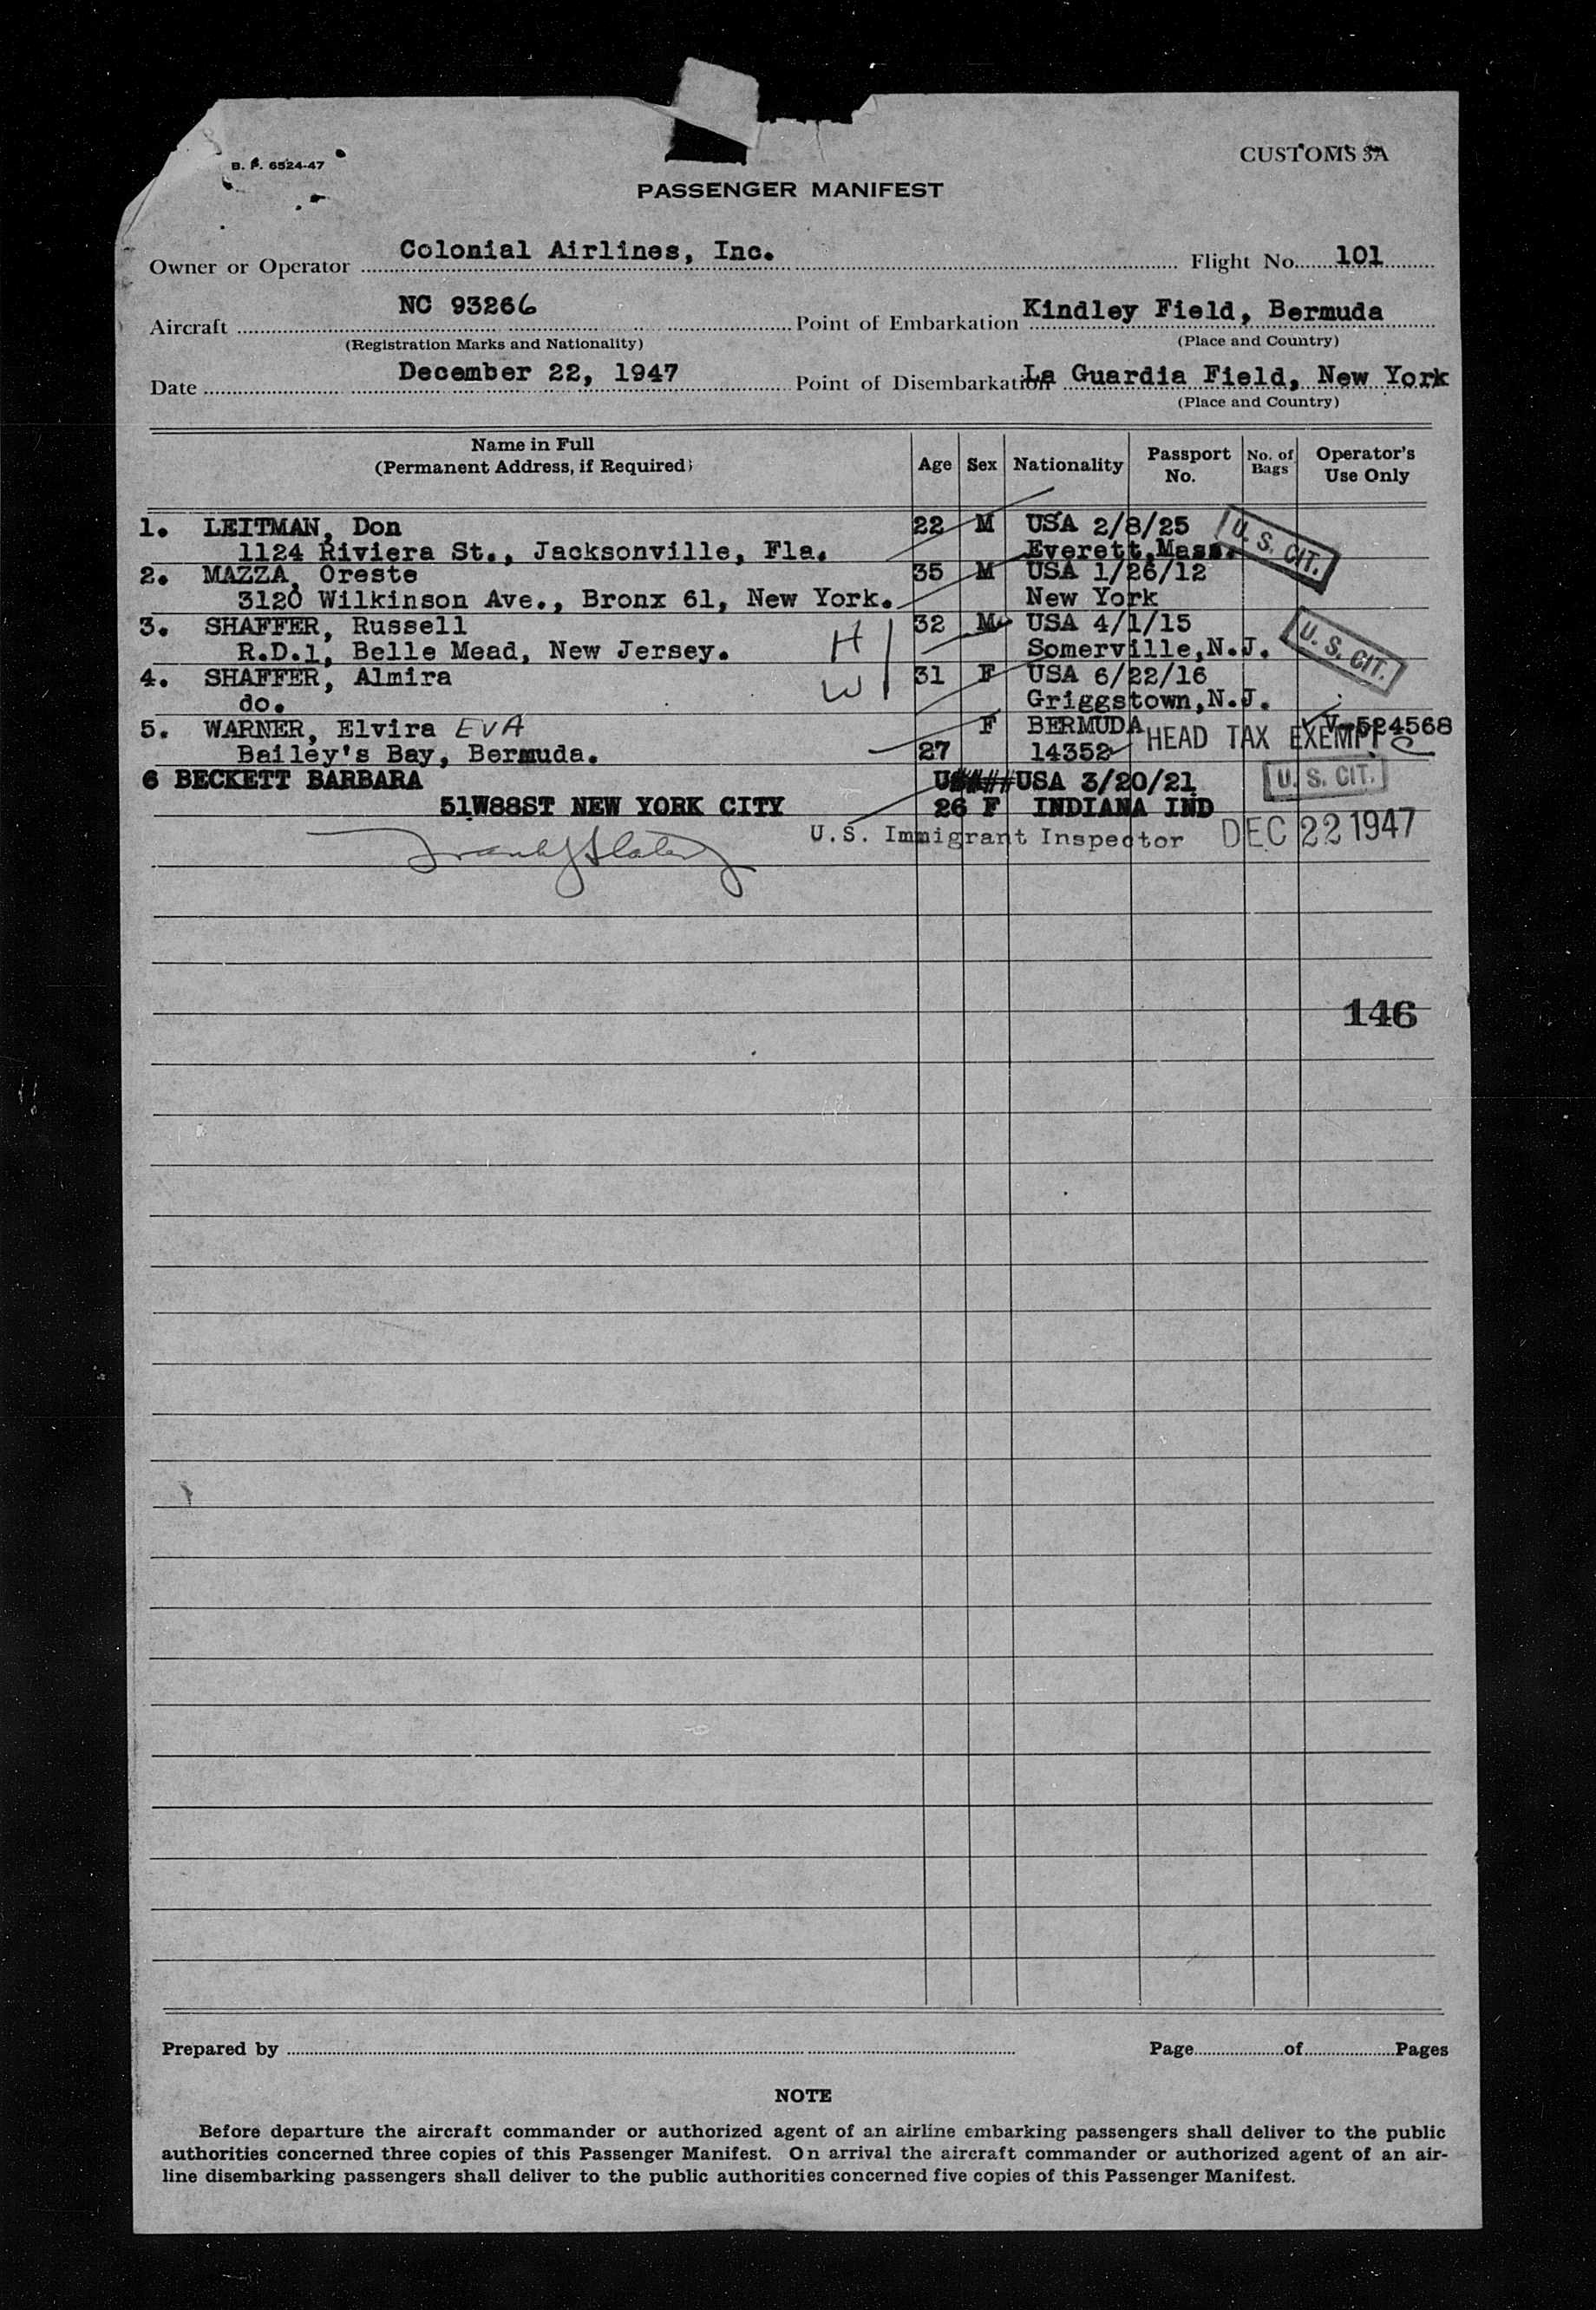 B. P. 6524-47
CUSTOMS 3A
PASSENGER MANIFEST
Owner or Operator Colonial Airlines, Inc. Flight No. 101
Aircraft NC 93266 Point of Embarkation Kindley Field, Bermuda
(Registration Marks and Nationality) (Place and Country)
Date December 22, 1947 Point of Disembarkation La Guardia Field, New York
(Place and Country)
Name in Full (Permanent Address, if Required) Age Sex Nationality Passport No. No. of Bags Operator's Use Only
1. LEITMAN, Don 22 M USA 2/8/25 U. S. CIT.
1124 Riviera St., Jacksonville, Fla. Everett, Mass.
2. MAZZA, Oreste 35 M USA 1/26/12
3120 Wilkinson Ave., Bronx 61, New York. New York
3. SHAFFER, Russell 32 M USA 4/1/15 U. S. CIT.
R.D.1, Belle Mead, New Jersey. H Somerville, N.J.
4. SHAFFER, Almira W 31 F USA 6/22/16
do. Griggstown, N.J.
5. WARNER, Elvira EVA F BERMUDA V-524568
Bailey's Bay, Bermuda. 27 14352 HEAD TAX EXEMPT
6 BECKETT BARBARA USA 3/20/21 U. S. CIT.
51W88ST NEW YORK CITY 26 F INDIANA IND
U.S. Immigrant Inspector DEC 22 1947
146
Prepared by Page of Pages
NOTE
Before departure the aircraft commander or authorized agent of an airline embarking passengers shall deliver to the public
authorities concerned three copies of this Passenger Manifest. On arrival the aircraft commander or authorized agent of an air-
line disembarking passengers shall deliver to the public authorities concerned five copies of this Passenger Manifest.